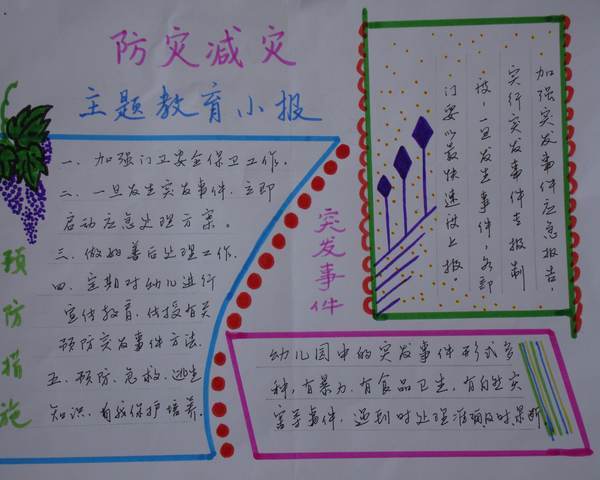 防灾减灾
主题教育小报
一、加强门卫安全保卫工作。
二、一旦发生突发事件,立即
启动应急处理方案。
三、做好善后处理工作.
四、定期对幼儿进行
宣传教育,传授有关
预防突发事件方法.
五、预防、急救、逃生
知识、自我保护培养.
预防措施
突发事件
加强突发事件应急报告,
实行突发事件专报制
度,一旦发生事件,各部
门要以最快速度上报.
幼儿园中的突发事件形式多
种,有暴力,有食品卫生,有自然灾
害等事件,遇到时处理准确及时果断